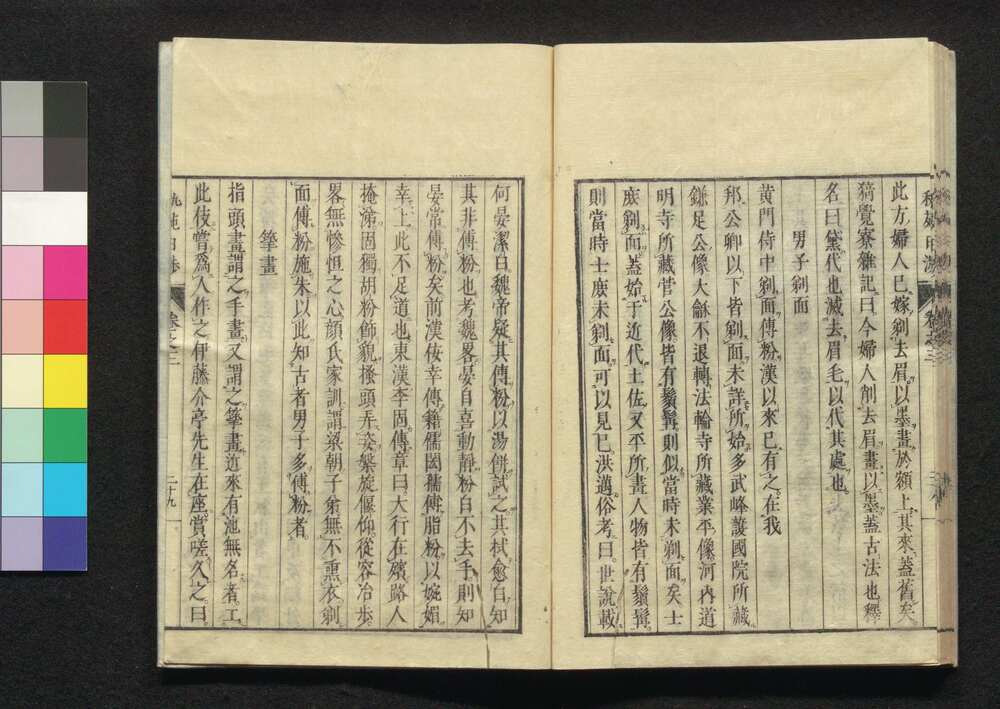 此方婦人已嫁剃去眉以墨畫於額上其來蓋舊矣
猗覺寮雜記曰今婦人削去眉畫以墨蓋古法也釋
名曰黛代也滅去眉毛以代其處也
男子剃面
黃門侍中剃面傅粉漢以來已有之在我
邦公卿以下皆剃面未詳所始多武峰護國院所藏
鎌足公像大龢不退轉法輪寺所藏業平像河內道
明寺所藏菅公像皆有鬚髯則似當時未剃面矣士
庶剃面蓋始于近代土佐又平所畫人物皆有鬚髯
則當時士庶未剃面可以見已洪邁俗考曰世說載
何晏潔白魏帝疑其傅粉以湯餅試之其拭愈白知
其非傅粉也考魏畧晏自喜動靜粉白不去手則知
晏常傅粉矣前漢佞幸傳籍孺閎孺傅脂粉以婉媚
幸上此不足道也東漢李固傳章曰大行在殯路人
掩涕固獨胡粉飾貌搔頭弄姿槃旋偃仰從容冶步
畧無慘怛之心顏氏家訓謂梁朝子弟無不熏衣剃
面傅粉施朱以此知古者男子多傅粉者
肇畫
指頭畫謂之手畫又謂之肇畫近來有池無名者工
此伎嘗爲人作之伊藤介亭先生在座賞嗟久之曰
卷之三
二十九